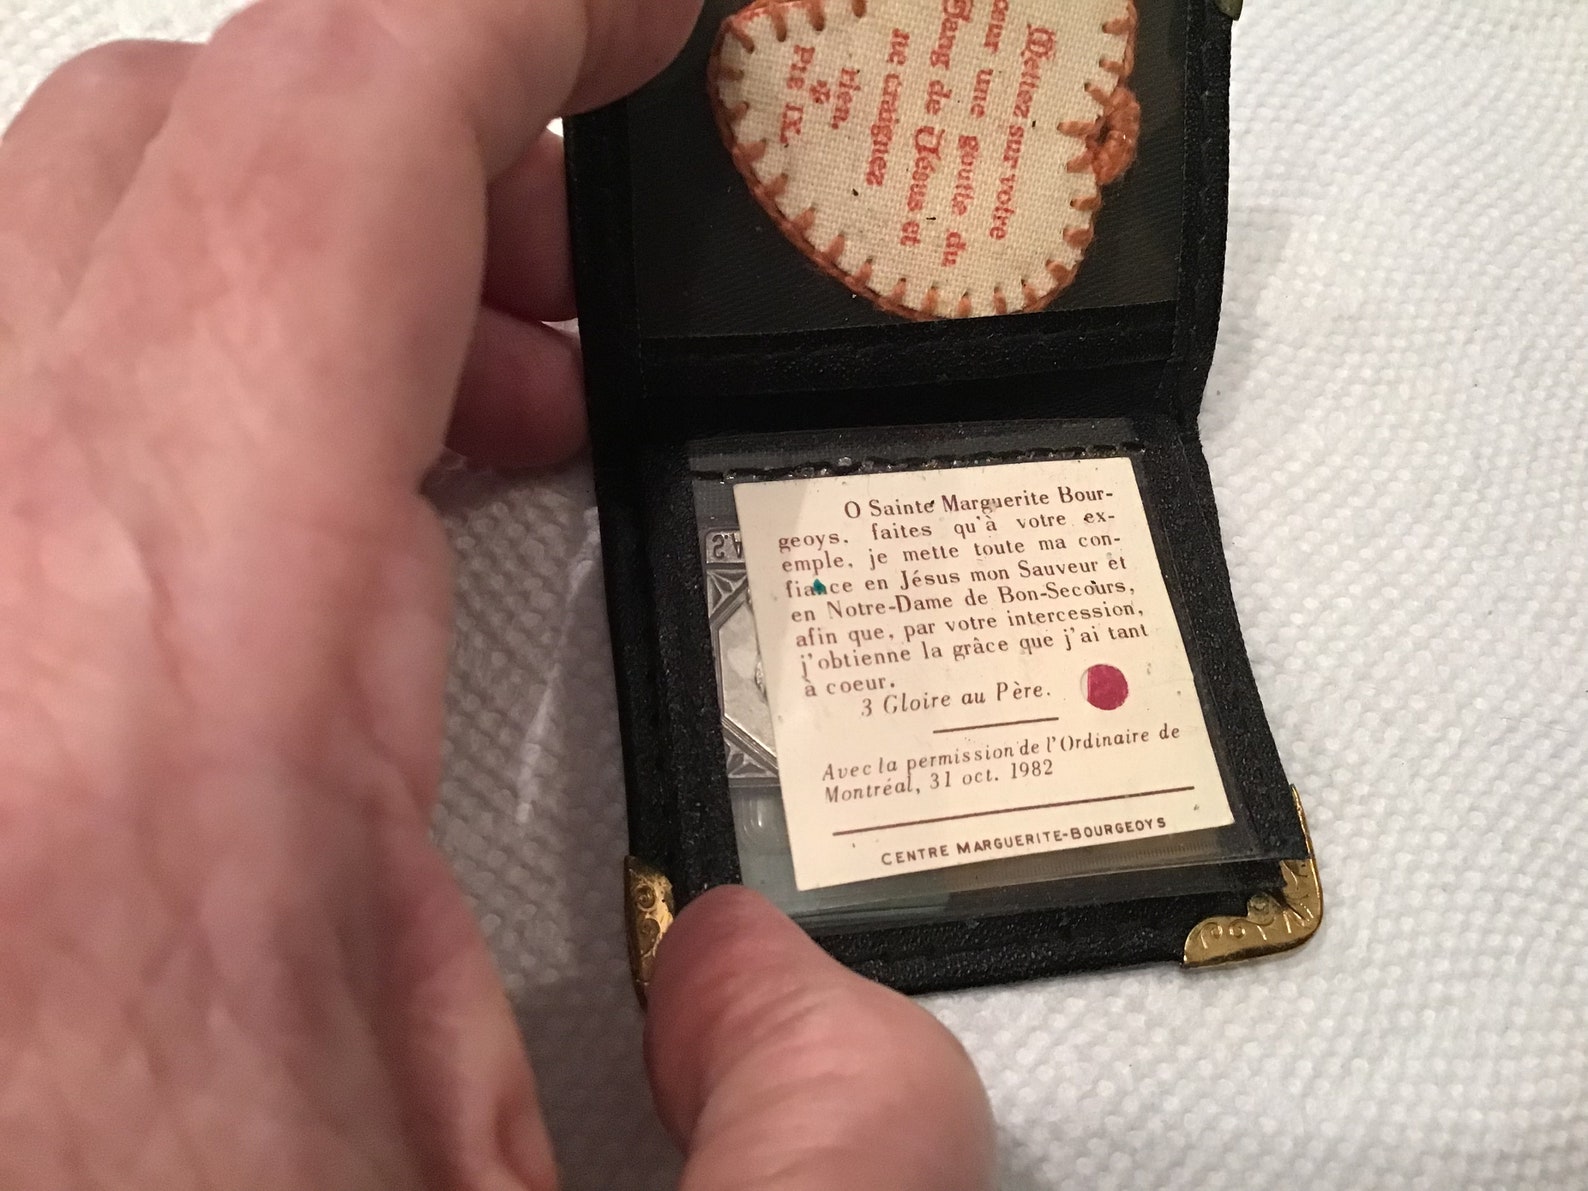 Mettez sur votre
cœur une goutte du
Sang de Jésus et
ne craignez
rien.
PIE IX.
O Sainte Marguerite Bour-
geoys, faites qu'à votre ex-
emple, je mette toute ma con-
fiance en Jésus mon Sauveur et
en Notre-Dame de Bon-Secours,
afin que, par votre intercession,
j'obtienne la grâce que j'ai tant
à coeur.
3 Gloire au Père.
Avec la permission de l'Ordinaire de
Montréal, 31 oct. 1982
CENTRE MARGUERITE-BOURGEOYS